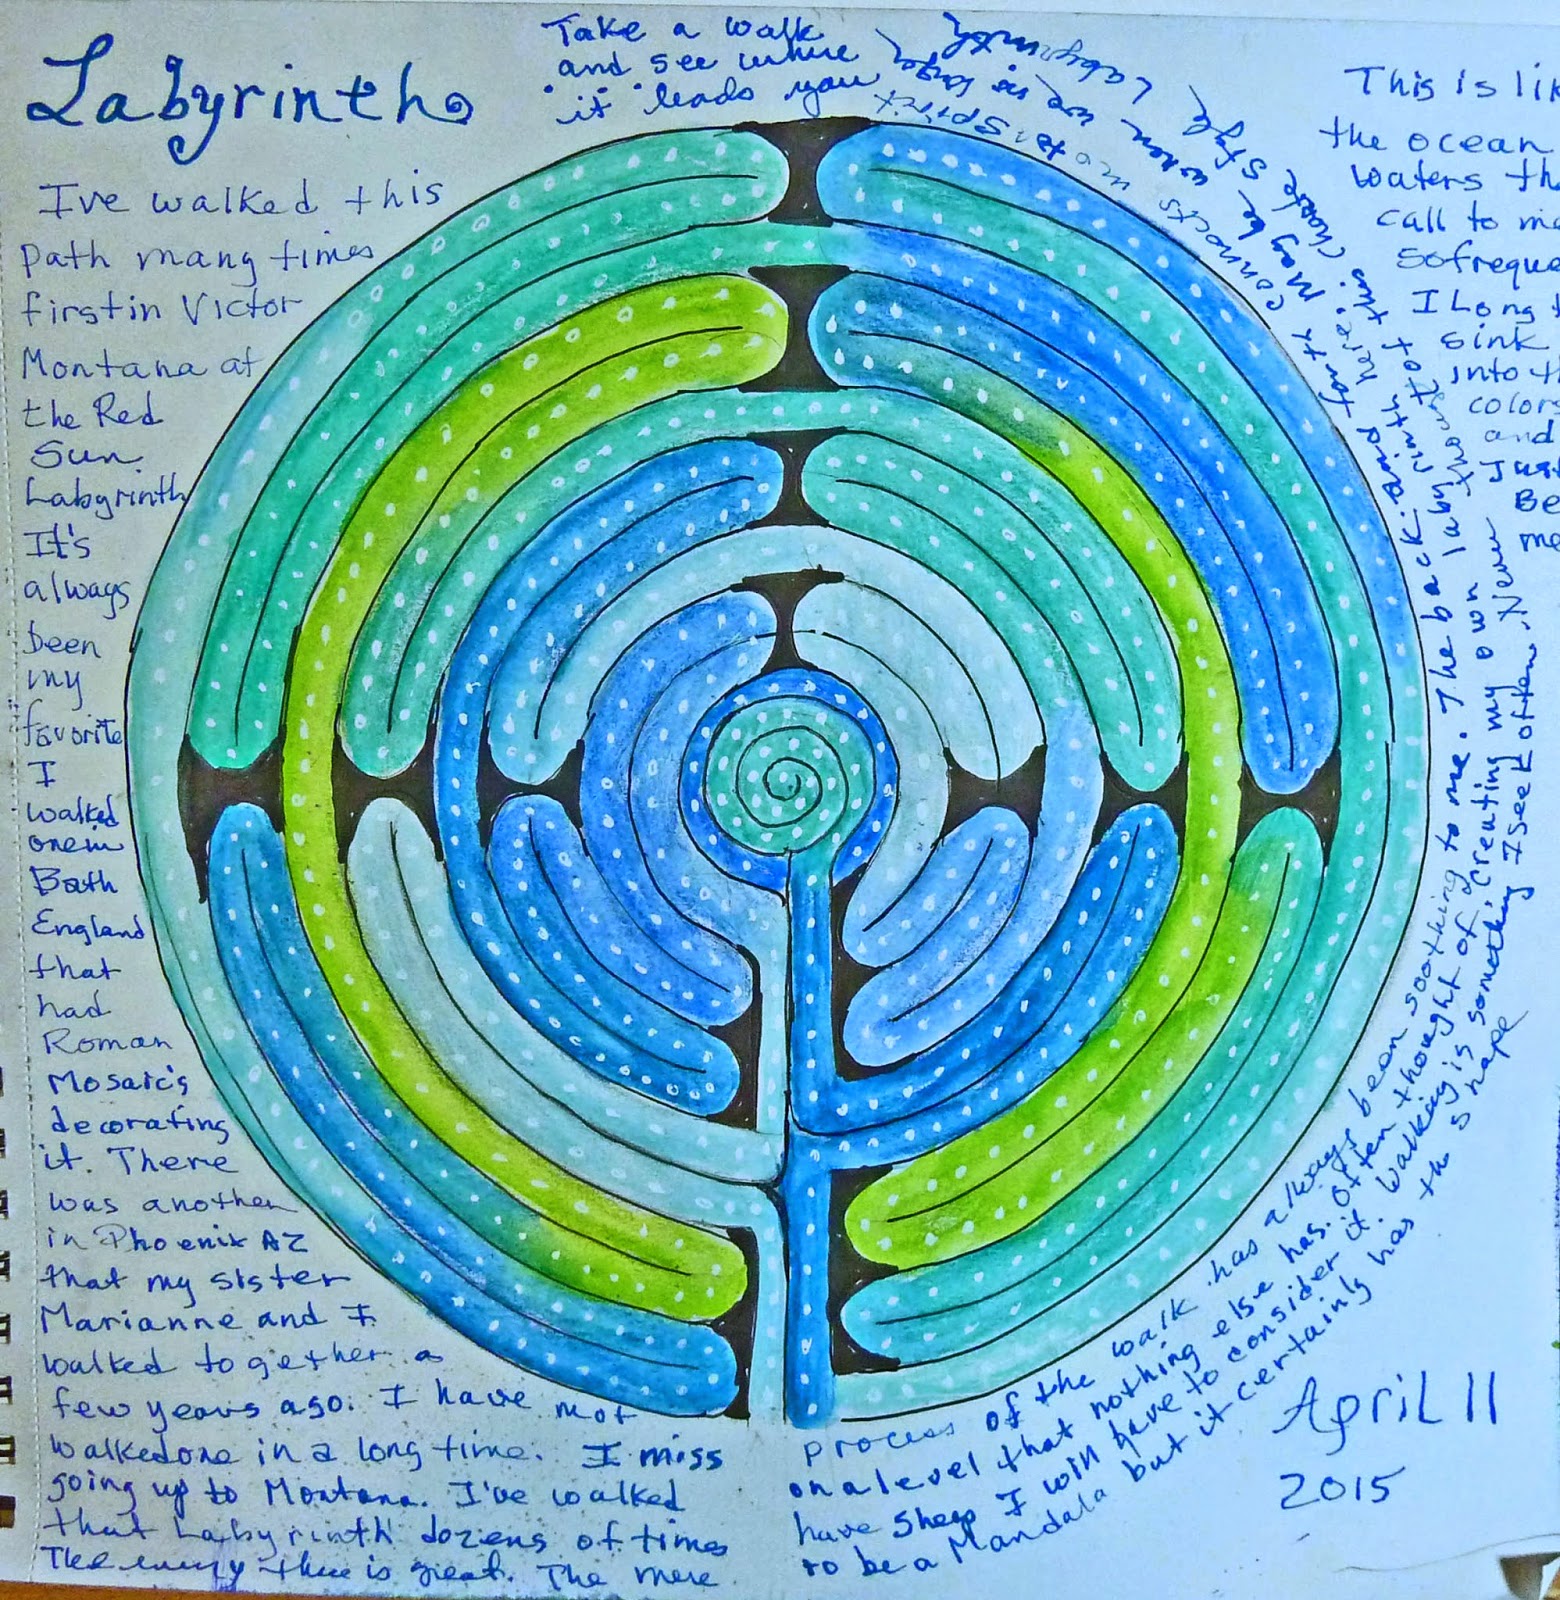 Labyrinth
Take a walk
and see where
it leads you
I've walked this
path many times
first in Victor
Montana at
the Red
Sun.
Labyrinth
It's
always
been
my
favorite
I
walked
one in
Bath
England
that
had
Roman
Mosaic's
decorating
it. There
was another
in Phoenix AZ
that my sister
Marianne and I
walked together a
few years ago. I have not
walked one in a long time. I miss
going up to Montana. I've walked
that Labyrinth dozens of times
The energy there is great. The mere
process of the walk has always been soothing to me. The back and forth connects me to Spirit
on a level that nothing else has. Often thought of creating my own labyrinth here. Maybe when we no longer
have sheep I will have to consider it. Walking is something I seek often. Never thought of this Chartre style Labyrinth
to be a Mandala but it certainly has the shape
This is lik
the ocean
waters tha
call to me
so freque
I Long t
sink
into th
color
and
Just
Be
me
April 11
2015